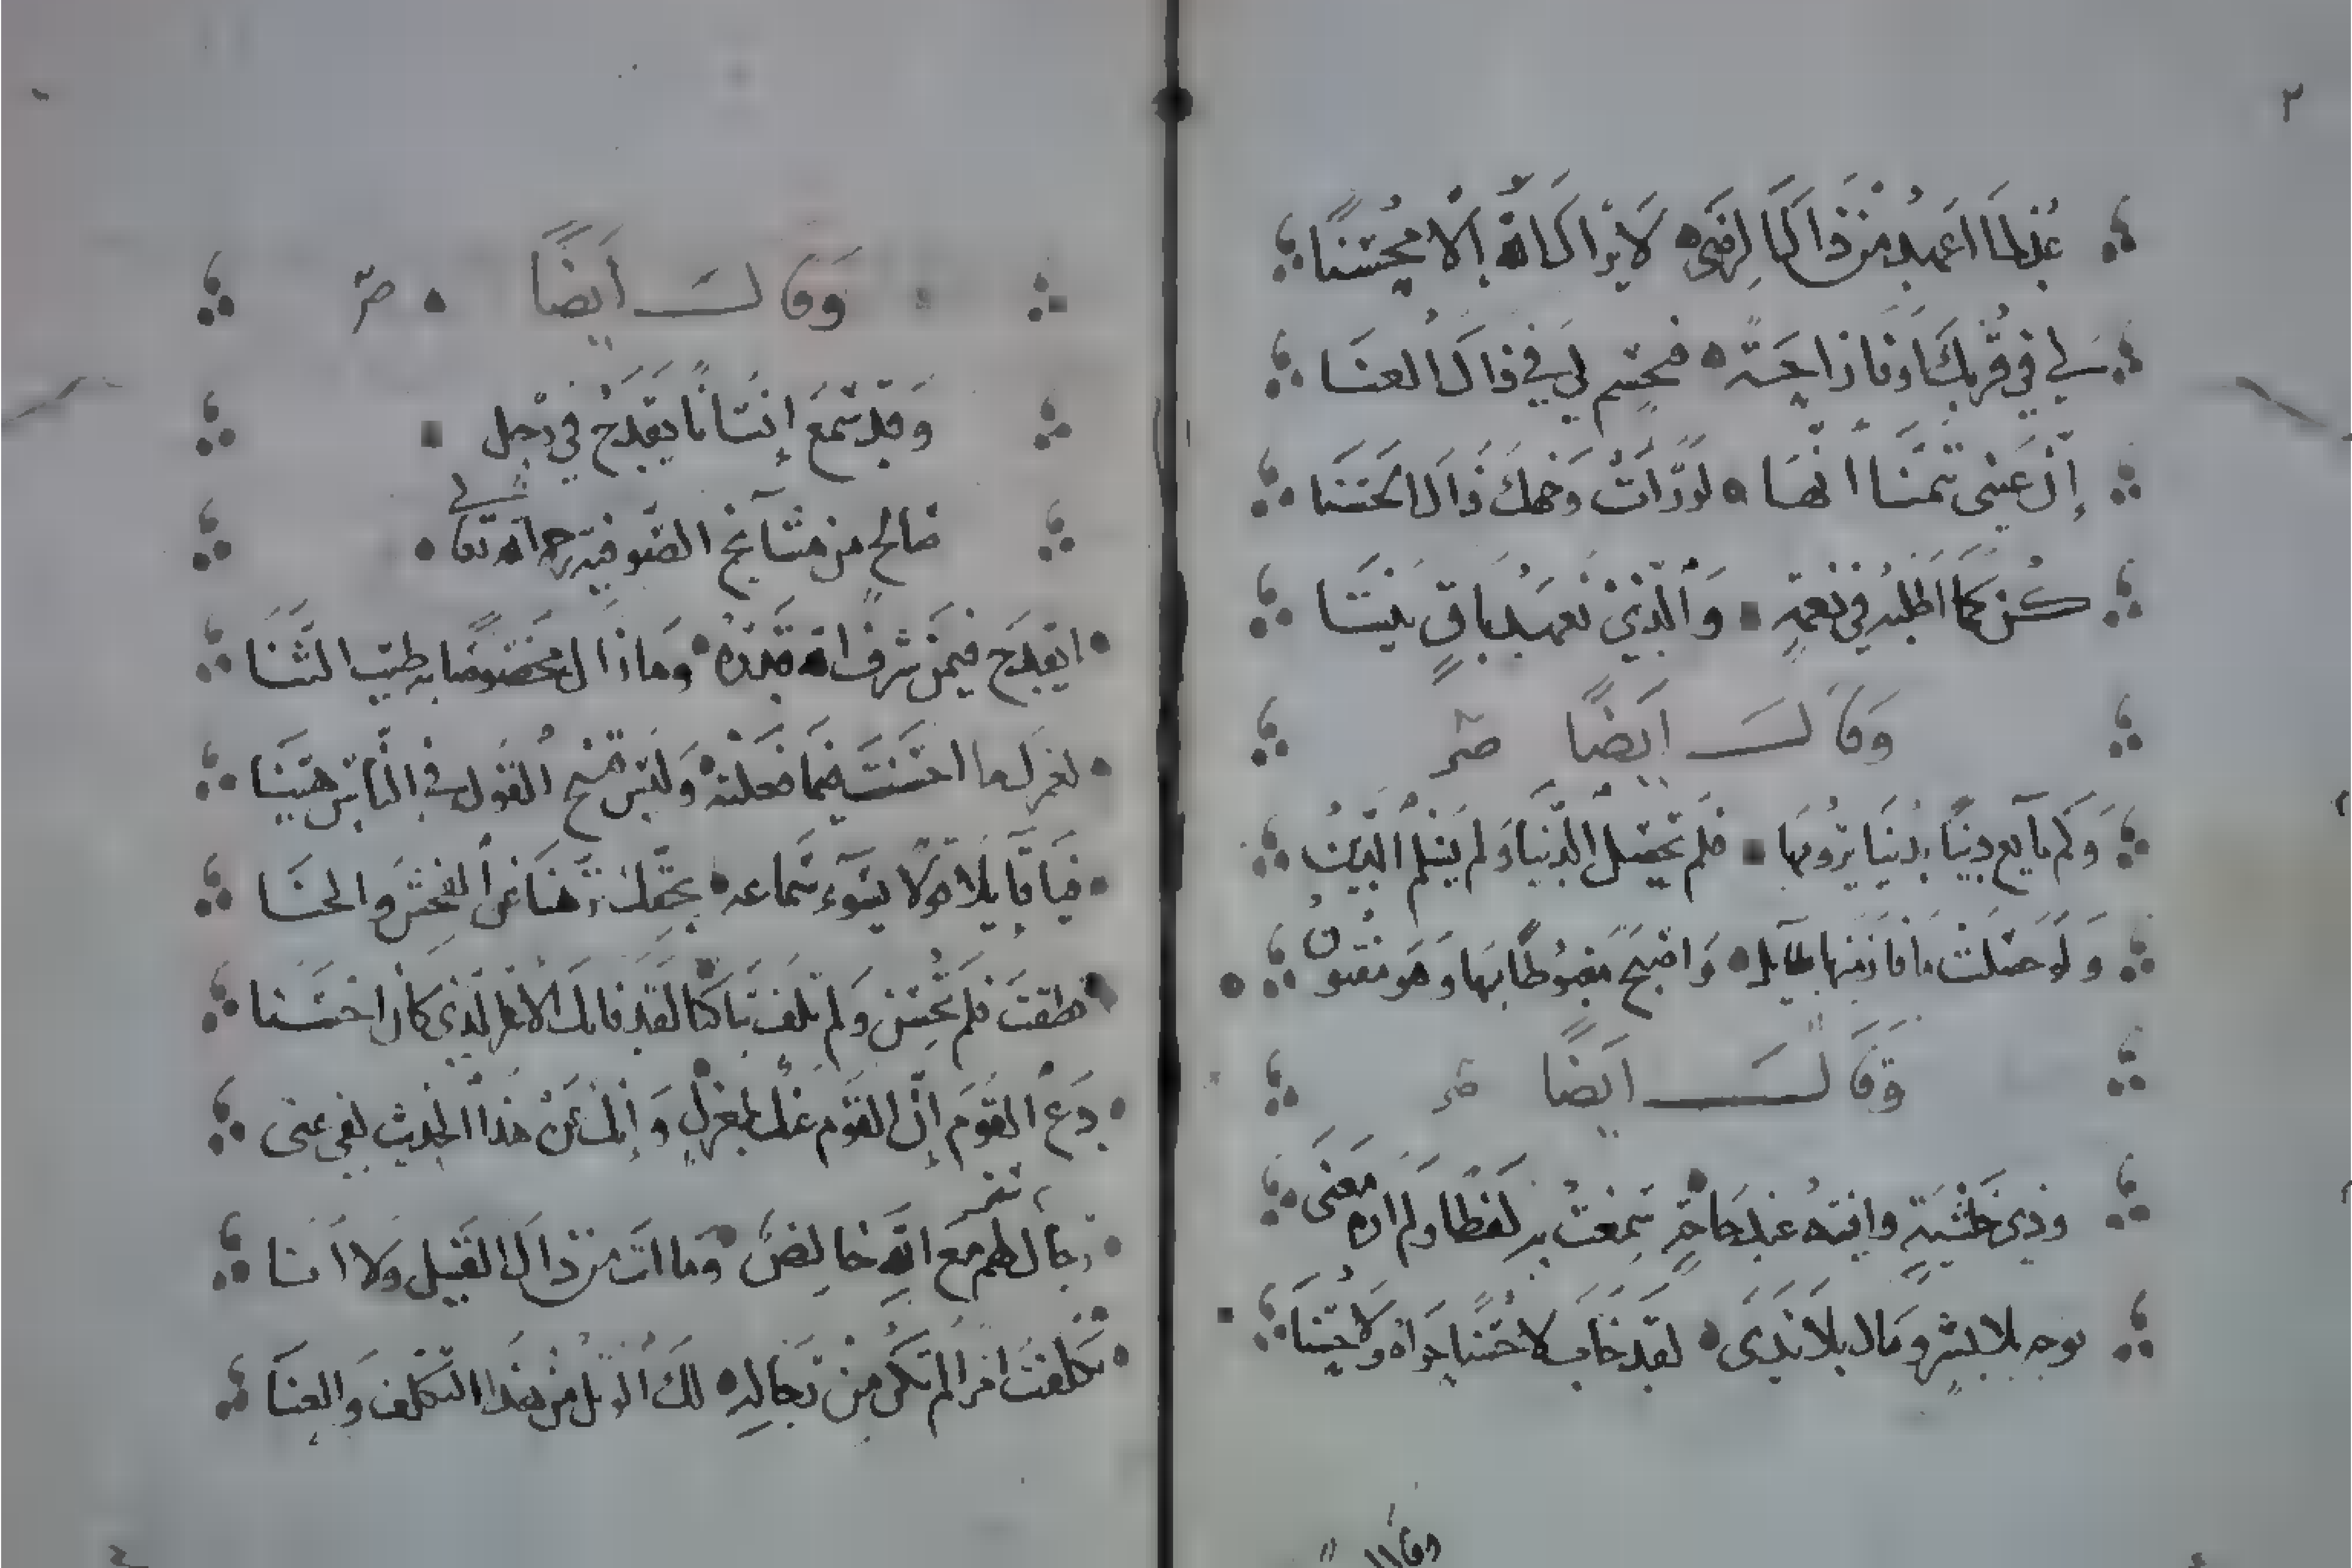 ٢
عُد لما اعهد من ذاك الرضى لا يراك الله إلا محسنا
لي في قربك اوفا راحة فحسم لي في ذاك العنا
إن عيني تتمنا انها لو رات وجهك ذاك الحسنا
كن كما اطلبه في نعمة والذي نعهد باق بيننا
وقال ايضا
وكم بايع دينا بدنيا يرومها فلم تحصل الدنيا ولم يسلم الدين
ولو حصلت ما فاز منها بطايل واصبح مغبوطا بها وهو مغبون
وقال ايضا
وذي خسة وافيته عند حاجة سمعت به لفظا ولم اره معنى
بوجه بلا بشر ومال بلا ندى لقد خاب لا حسنا حواه ولا حسنا
وقال
وقال ايضا
وقد سمع إنسانا يقدح في رجل
صالح من مشايخ الصوفية رحمه الله تعالى
ايقدح فيمن شرف الله قدره وما زال مخصوصا به طيب الثنا
لعمرك ما احسنت فيما فعلته وليس قبيح القول في الناس هينا
فيا قايلا قولا يسوء سماعه بحقك نزهنا عن الفحش والخنا
نطقت فلم تحسن ولم تلف ساكتا لقد فاتك الامر الذي كان احسنا
دع القوم إن القوم عنك بمعزل وإنك عن هذا الحديث لفي غنى
رجال لهم سر مع الله خالص وما انت من ذاك القبيل ولا انا
تكلفت امرا لم تكن من رجاله لك الويل من هذا التكلف والعنا